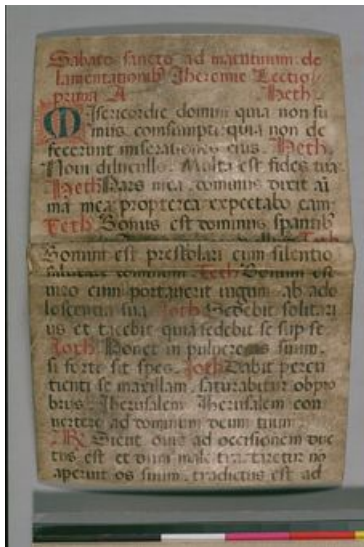 Sabato sancto ad matutinum de
lamentationib Jheremie Lectio
prima A Heth
Misericordie domini quia non su
mus comsumpti quia non de
fecerunt miserationes eius. Heth.
Noui diluculo. Multa est fides tua
Heth Pars mea dominus dixit ai
ma mea propterea expectabo eum
Teth Bonus est dominus sperantib
Teth
Bonum est prestolari cum silentio
salutare dominum Teth Bonum est
uiro cum portauerit iugum ab ado
loscentia sua Joth Sedebit solitari
us et tacebit quia sedebit se sup se
Joth Ponet in puluere os suum.
si forte sit spes. Joth Dabit percu
tienti se maxillam. saturabitur obpro
brus. Jherusalem Jherusalem con
uertere ad dominum deum tuum.
R Sicut ouis ad occisionem duc
tus est et dum male tractaretur no
aperuit os suum. tradictus est ad